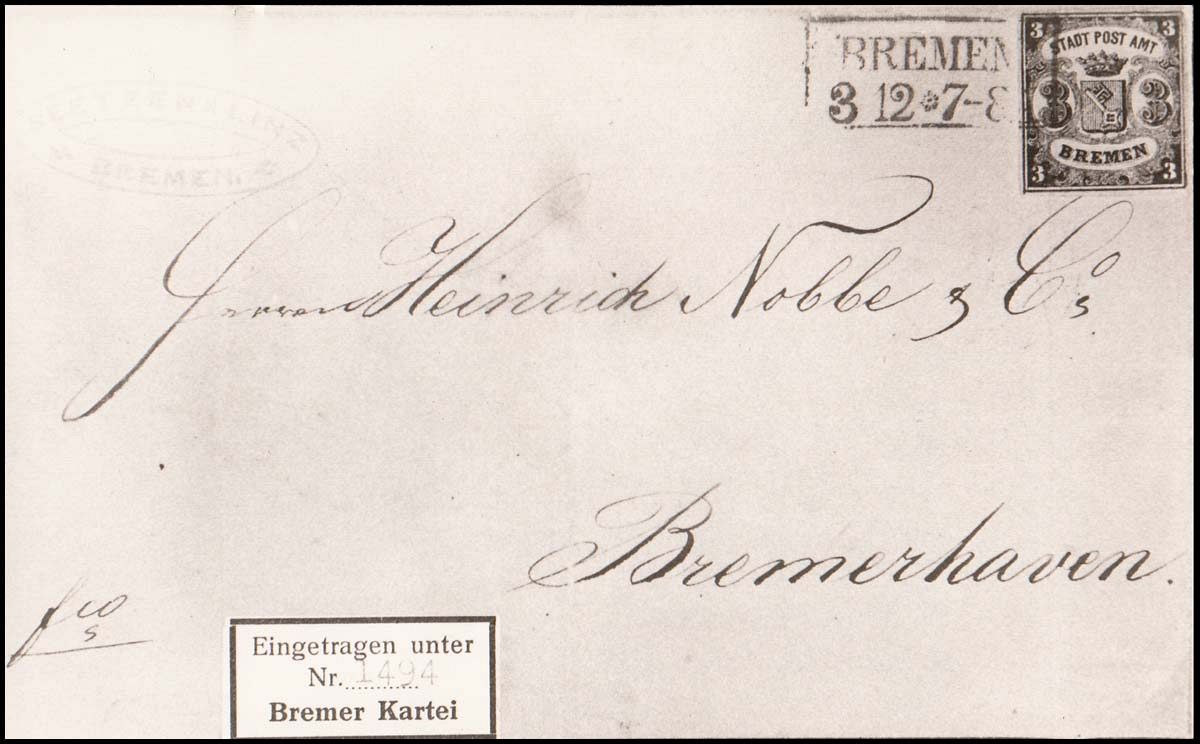 BREMEN
3 12 * 7-8
3 3
STADT POST AMT
3 3
BREMEN
3 3
BREMEN.
Herren Heinrich Nobbe & Co
Bremerhaven.
fco
Eingetragen unter
Nr. 1494
Bremer Kartei